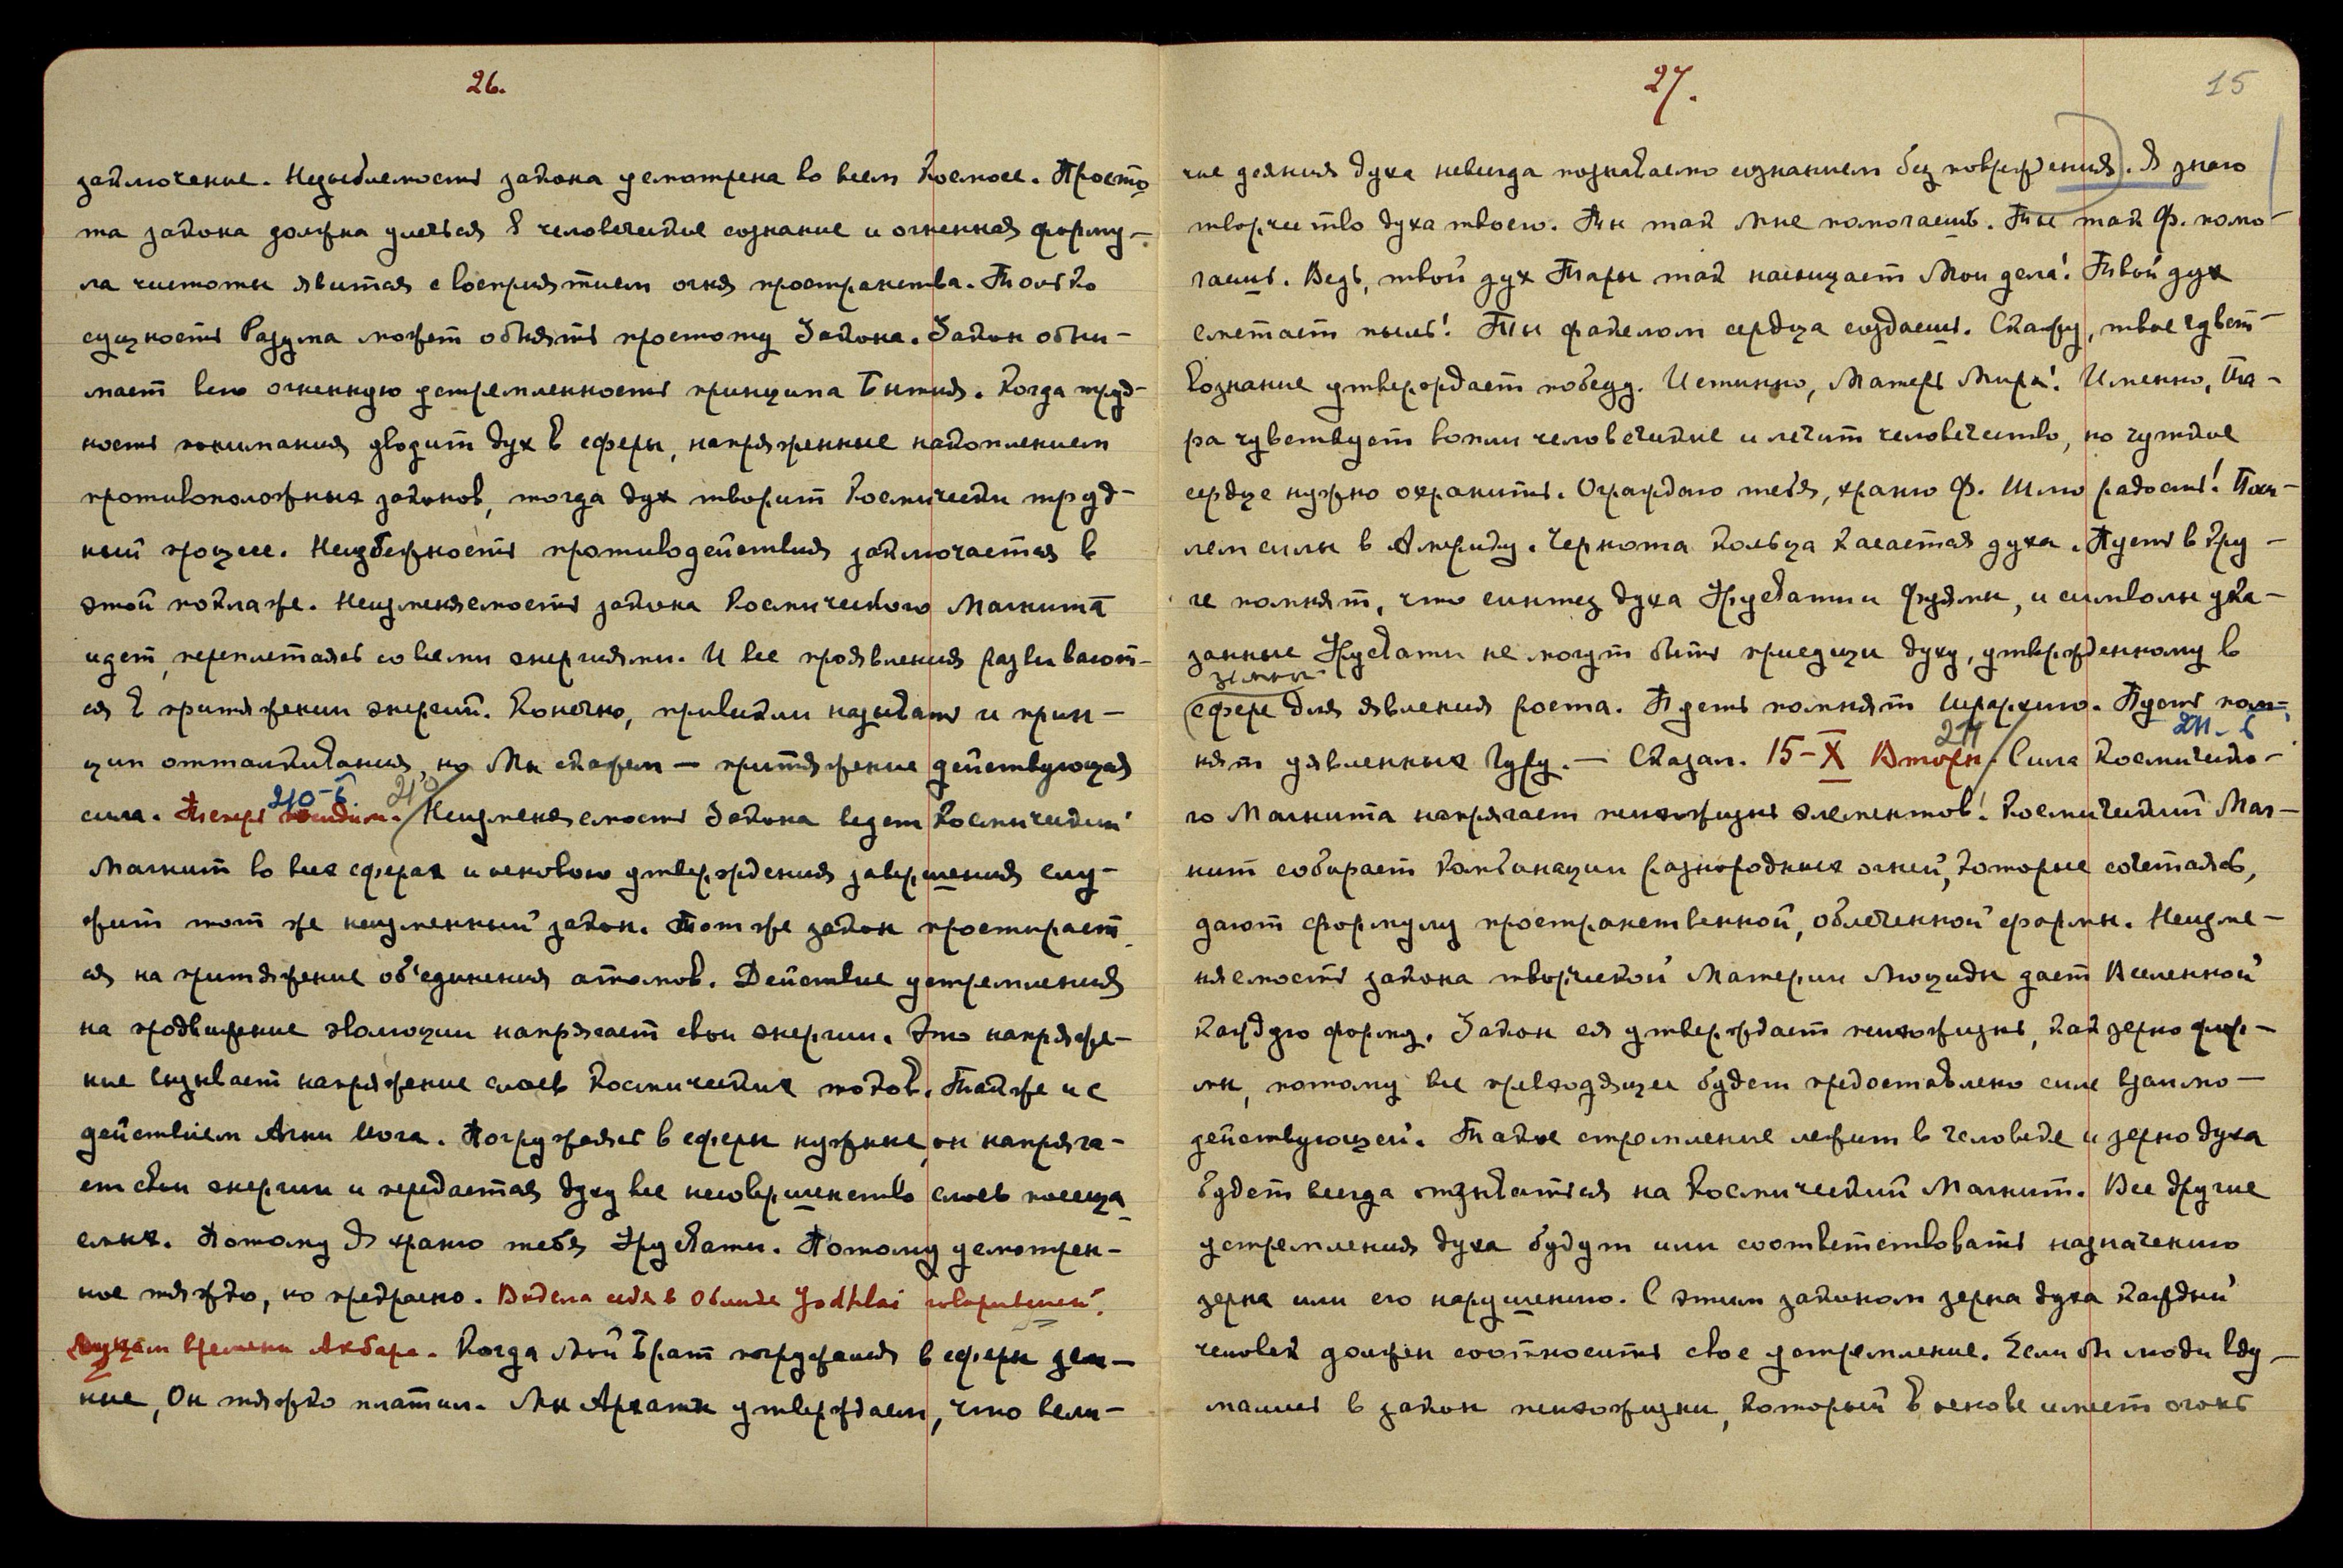 26.
заключение. Незыблемость закона усмотрена во всем Космосе. Просто
та закона должна улечься в человеческое сознание и огненная форму-
ла чистоты явится с восприятием огня пространства. Только
сущность Разума может обнять простоту Закона. Закон обни-
мает всю огненную устремленность принципа Бытия. Когда труд-
ность понимания уводит дух в сферы, напряженные накоплением
противоположных законов, тогда дух творит Космически труд-
ный процесс. Неизбежность противодействия заключается в
этой поклаже. Неизменяемость закона Космического Магнита
идет, переплетаясь со всеми энергиями. И все проявления развивают-
ся в притяжении энергий. Конечно, привыкли называть и прин-
цип отталкивания, но Мы скажем — притяжение действующая
сила. Теперь 210-б 210 Неизменяемость Закона ведет Космический
Магнит во всех сферах и основою утверждения завершения слу-
жит тот же неизменный закон. Тот же закон простирает
ся на притяжение об'единения атомов. Действие устремления
на продвижение эволюции напрягает свои энергии. Это напряже-
ние вызывает напряжение слоев Космических токов. Также и с
действием Агни Йога. Погружаясь в сферы нужные, он напряга-
ет свои энергии и передается духу все несовершенство слоев посеща
емых. Потому Я храню тебя Урусвати. Потому усмотрен-
ное тяжко, но прекрасно. Видела себя в облике Jodhbai говорившей
времени Акбара. Когда Мой Брат погружался в сферы зем-
ные, Он тяжко платил. Мы Архаты утверждаем, что вели-
27.
15
чие деяния духа невсегда познаваемо сознанием без повреждения). Я знаю
творчество духа твоего. Ты так Мне помогаешь. Ты так Ф. помо-
гаешь. Ведь, твой дух Тары так насыщает Мои дела! Твой дух
сметает пыль! Ты факелом сердца создаешь. Скажу, твое чувст-
вознание утверждает победу. Истинно, Матерь Мира! Именно, Та-
ра чувствует вопли человеческие и лечит человечество, но чуткое
сердце нужно охранить. Ограждаю тебя, храню Ф. Шлю радость! Пош-
лем силы в Америку. Чернота кольца касается духа. Пусть в Кру-
ге помнят, что синтез духа Урусвати и Фуямы, и символы ука-
занные Урусвати не могут быть присущи духу, утвержденному в
земной
(сфере для явления роста. Пусть помнят Иерархию. Пусть пом-
211 211-б
нят уявленных Гуру. — Сказал. 15-X Вторн. Сила Космическо-
го Магнита напрягает психожизнь элементов! Космический Маг-
нит собирает комбинации разнородных огней, которые сочетаясь,
дают формулу пространственной, облеченной формы. Неизме-
няемость закона творческой Материи Люциды дает Вселенной
каждую форму. Закон ея утверждает психожизнь, как зерно фор-
мы, потому все превходящее будет предоставлено силе взаимо-
действующей. Такое стремление лежит в человеке и зерно духа
будет всегда отзываться на Космический Магнит. Все другие
устремления духа будут или соответствовать назначению
зерна или его нарушению. С этим законом зерна духа каждый
человек должен соотносить свое устремление. Если бы люди вду-
мались в закон психожизни, который в основе имеет огонь